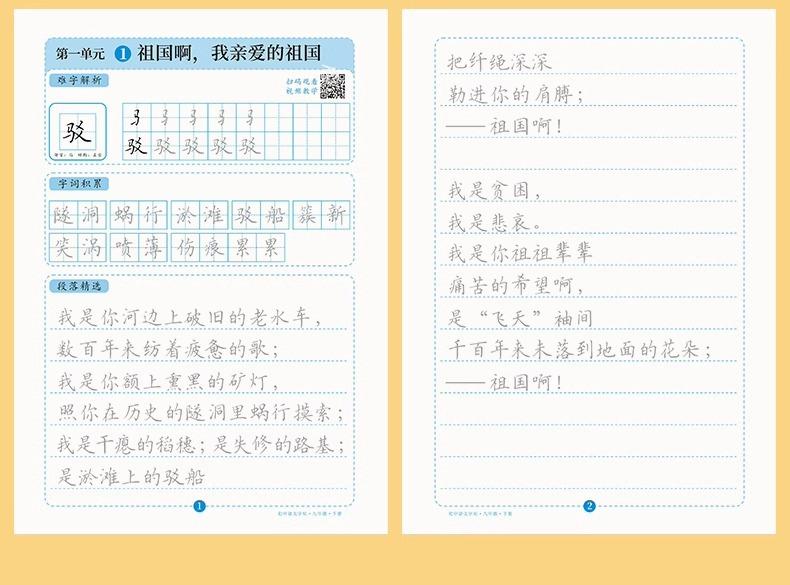 第一单元 1 祖国啊，我亲爱的祖国
难字解析
扫码观看
视频教学
驳
驳 驳 驳 驳 驳
字词积累
隧洞 蜗行 淤滩 驳船 簇新
笑涡 喷薄 伤痕累累
段落精选
我是你河边上破旧的老水车，
数百年来纺着疲惫的歌；
我是你额上熏黑的矿灯，
照你在历史的隧洞里蜗行摸索；
我是干瘪的稻穗；是失修的路基；
是淤滩上的驳船
1
初中语文字帖·九年级·下册
把纤绳深深
勒进你的肩膊；
——祖国啊！
我是贫困，
我是悲哀。
我是你祖祖辈辈
痛苦的希望啊，
是“飞天”袖间
千百年来未落到地面的花朵；
——祖国啊！
2
初中语文字帖·九年级·下册